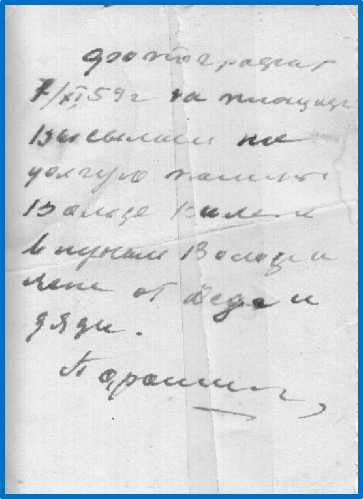 фотограция
7/XI,59 г на площаде
высылаем на
долгую память
Володе
внукам Володи и
Лене от деда и
дяди.